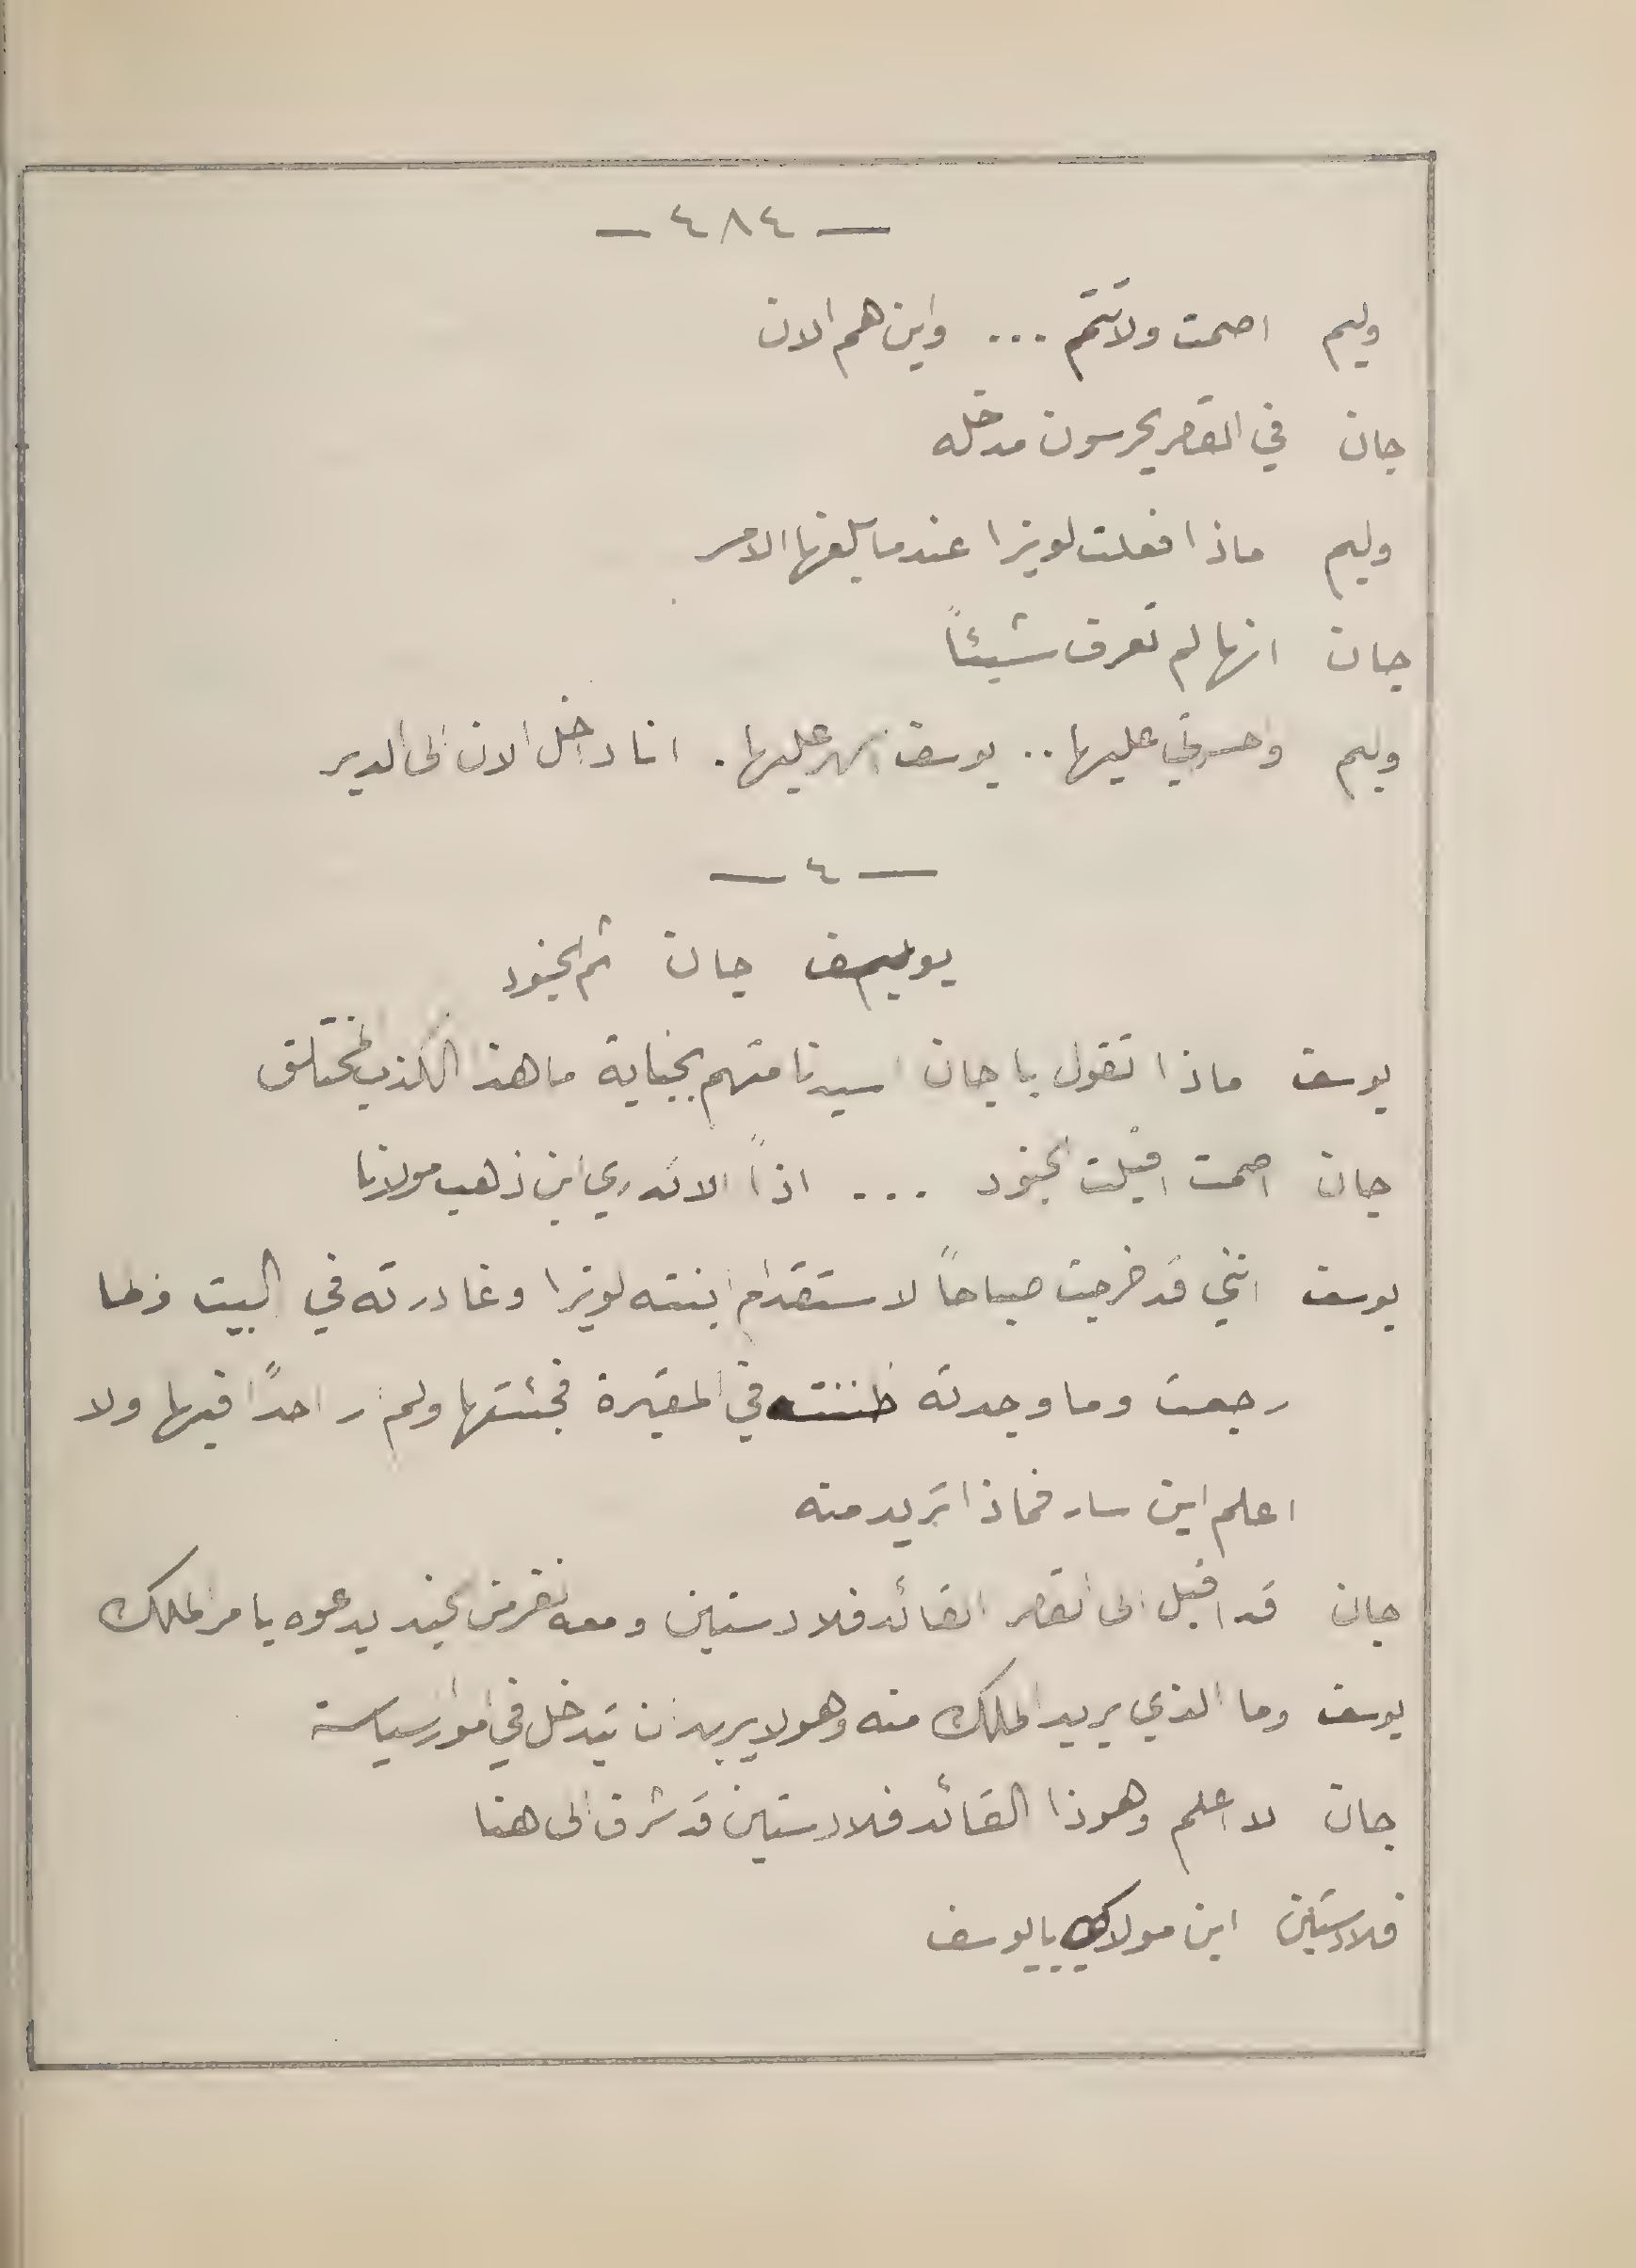 — ٤٨٤ —
وليم اصمت ولا تتم ... واين هم الان
جان في القصر يحرسون مدخله
وليم ماذا فعلت لويزا عندما بلغها الامر
جان انها لم تعرف شيئاً
وليم واحسرتي عليها .. يوسف اسهر عليها . انا داخل الان الى الدير
— ٤ —
يوسف جان ثم الجنود
يوسف ماذا تقول يا جان اسيدنا متهم بجناية ما هذا الكذب المختلق
جان اصمت اقبلت الجنود ... اذاً الا تدري اين ذهب مولانا
يوسف انني قد خرجت صباحاً لاستقدام ابنته لويزا وغادرته في البيت ولما
رجعت وما وجدته ظننته في المقبرة فجئتها ولم ار احداً فيها ولا
اعلم اين سار فماذا تريد منه
جان قد اقبل الى القصر القائد فلادستين ومعه نفر من الجند يدعوه بامر الملك
يوسف وما الذي يريد الملك منه وهو لا يريد ان يتدخل في امور سياسة
جان لا اعلم وهوذا القائد فلادستين قد شرف الى هنا
فلادستين اين مولاك يا يوسف